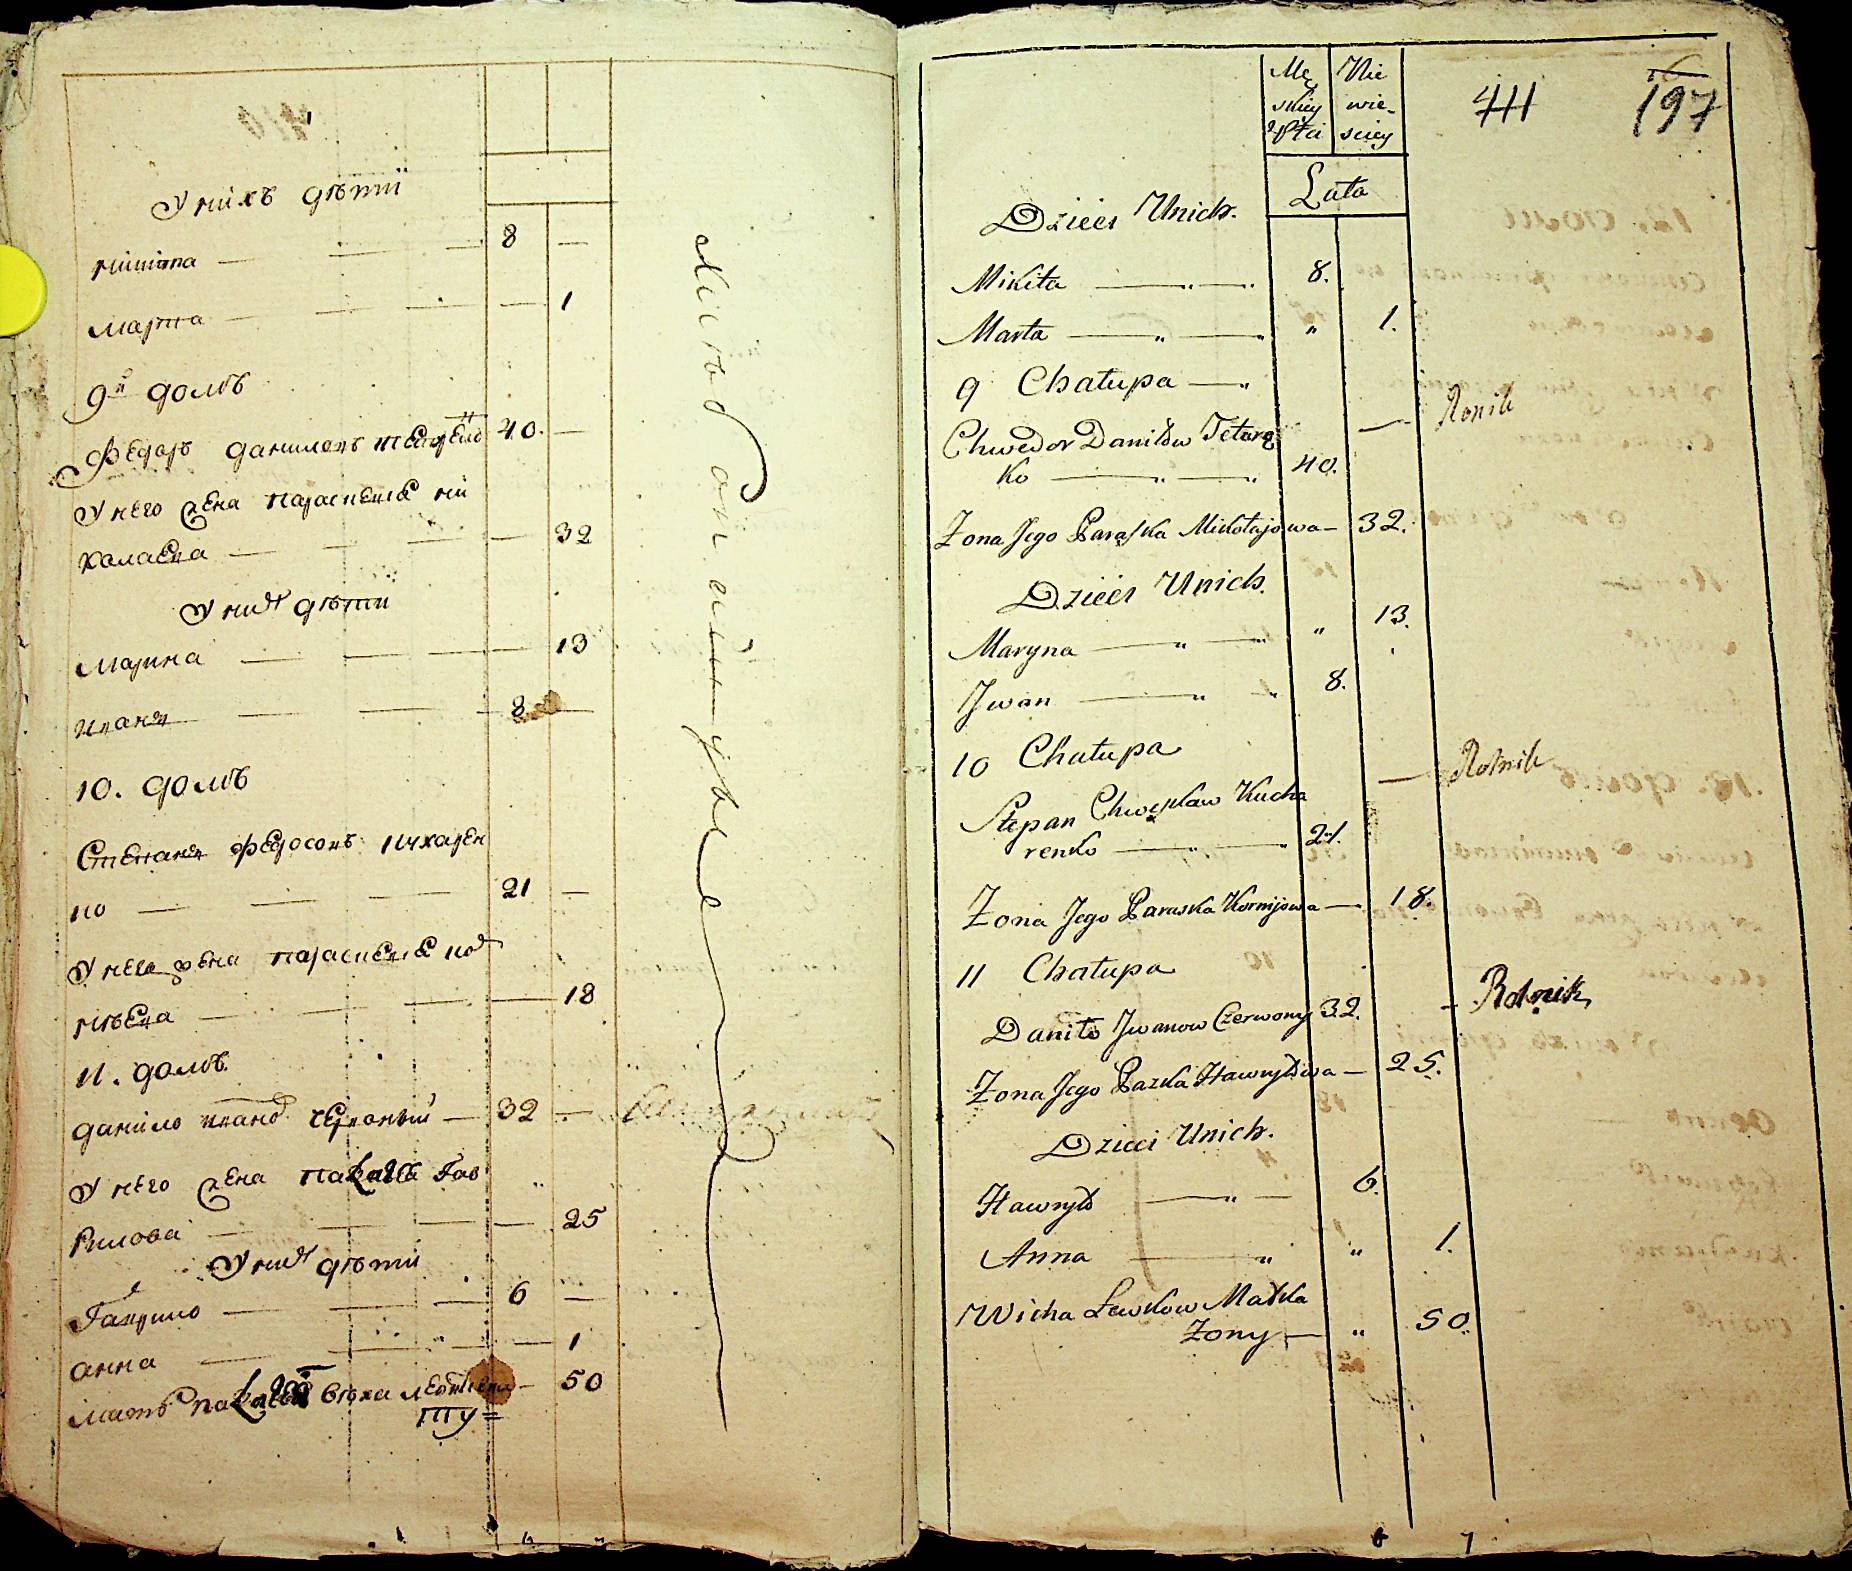 У нихъ дѣти
никита — — — 8 —
марта — — — — 1
9й домъ
Федоръ даниловъ 40. —
У него жена параскевія ни
колаева — — — — 32
У них дѣти
марина — — — — 13
иванъ — — — 8 —
10. домъ
Степанъ федосовъ кухарен
ко — — — 21 —
У него жена параскевія кор
нѣева — — — — 18
11. домъ
данило иванов червоный — 32 —
У него жена Гав
рилова — — — — 25
У них дѣти
Гаврило — — — 6 —
анна — — — — 1
мать вѣха 50
Mę
skiey
Płci
Nie
wie-
sciey
411
197
Lata
Dzieci Unich.
Mikita — „ — „ 8.
Marta — „ — „ „ 1.
9 Chałupa — „
Chwedor Daniłow Tetere — Rolnik
ko — „ — „ 40.
Żona Jego Paraska Mikołajowa — 32.
Dzieci Unich.
Maryna — „ — „ „ 13.
Jwan — „ „ 8.
10 Chałupa
Stepan Kucha — Rolnik
renko — „ — „ 21.
Żona Jego Paraska Kornijowa — 18.
11 Chałupa
Daniło Jwanow Czerwony 32. - Rolnik
Żona Jego Pazka Hawryłowa — 25.
Dzieci Unich.
Hawryło — „ — 6.
Anna — „ „ 1.
Wicha Lewkow Matka
Żony — „ 50.